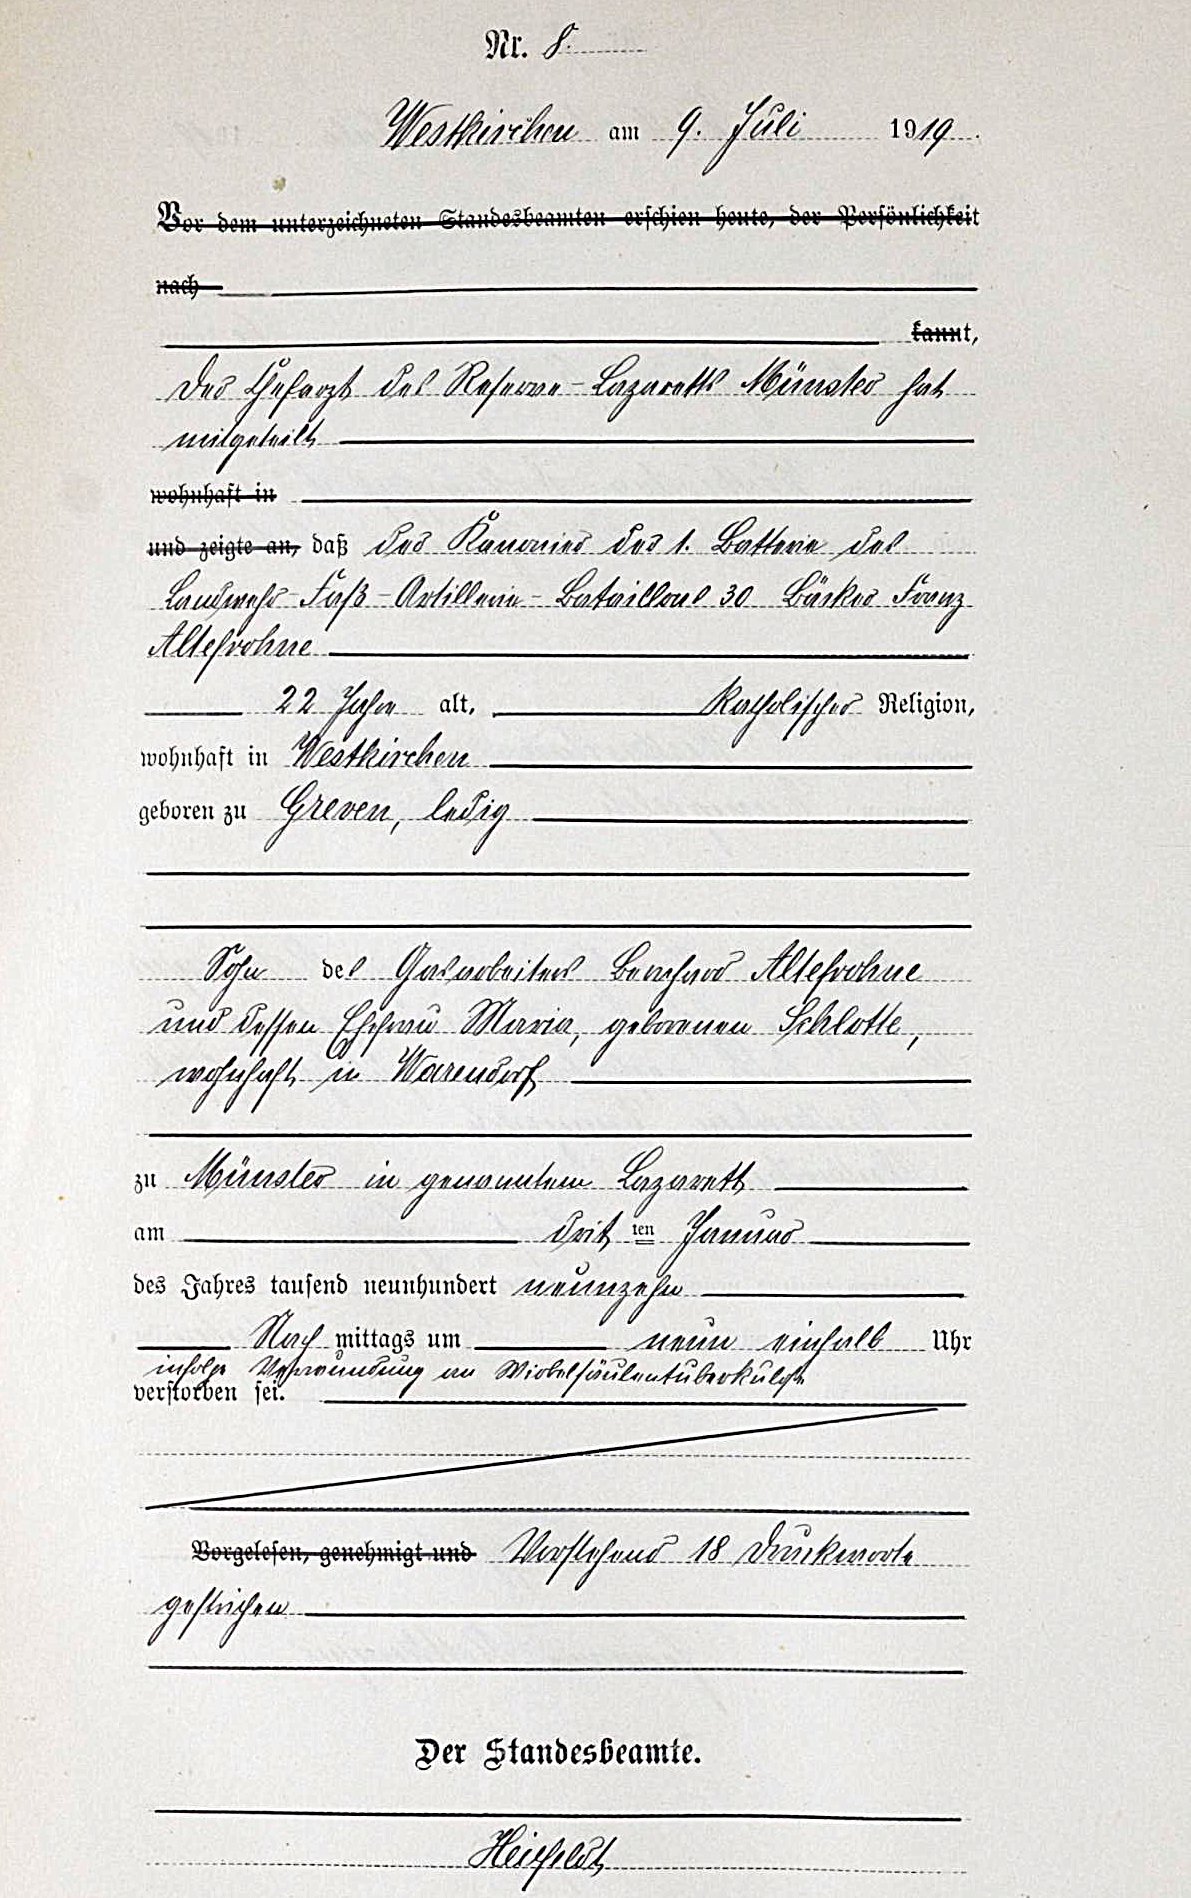 Nr. 8.
Westkirchen am 9. Juli 1919.
Vor dem unterzeichneten Standesbeamten erschien heute, der Persönlichkeit
nach
kannt,
Der Chefarzt des Reserve-Lazaretts Münster hat
mitgeteilt
wohnhaft in
und zeigte an, daß der Kanonier der 1. Batterie des
Landwehr-Fuß-Artillerie-Bataillons 30 Bäcker Franz
Altefrohne
22 Jahre alt, katholischer Religion,
wohnhaft in Westkirchen
geboren zu Greven, ledig
Sohn des Gasarbeiters Bernhard Altefrohne
und dessen Ehefrau Maria, geborenen Schlotte,
wohnhaft in Warendorf
zu Münster in genanntem Lazarett
am drit ten Januar
des Jahres tausend neunhundert neunzehn
Nach mittags um neun einhalb Uhr
infolge Verwundung an Wirbelsäulentuberkulose
verstorben sei.
Vorgelesen, genehmigt und Vorstehend 18 Druckworte
gestrichen
Der Standesbeamte.